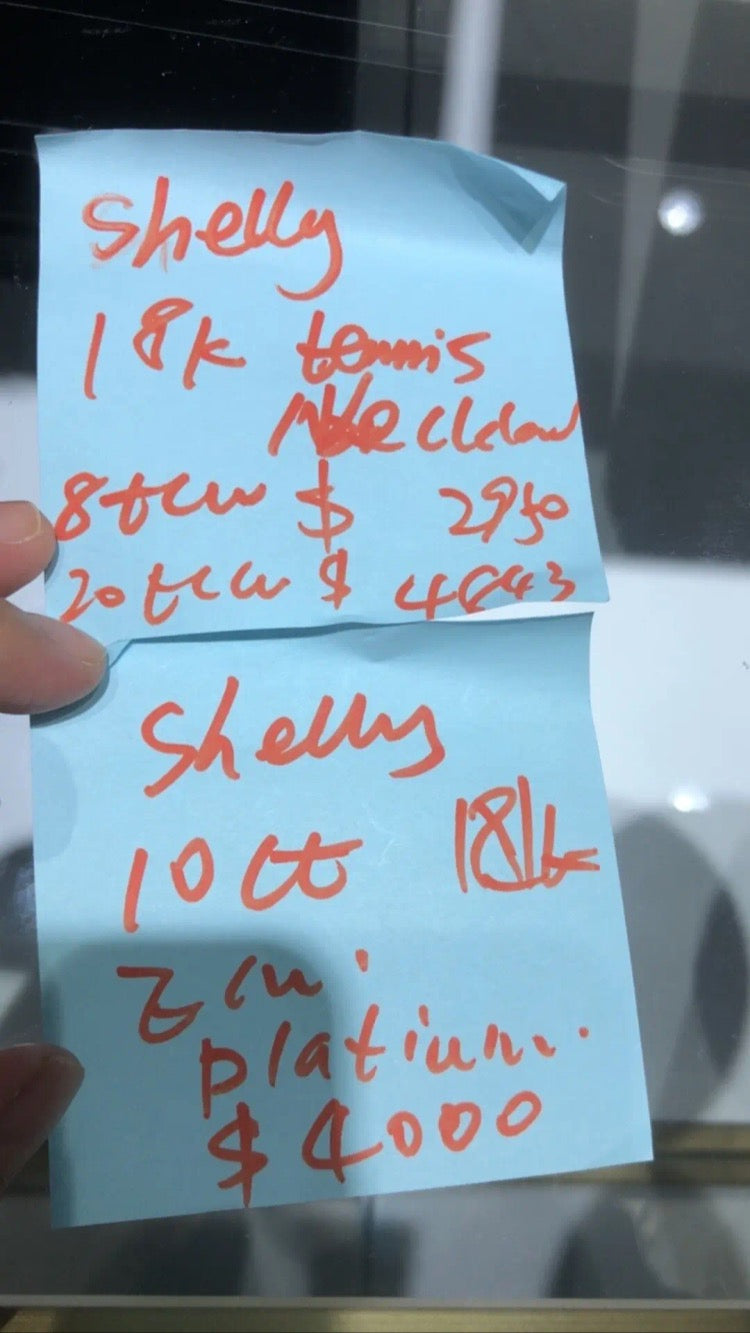 Shelly
18k tennis
Necklace
8tcw $ 2950
20tcw $
Shelly
10ct 18k
platiunn.
$4000